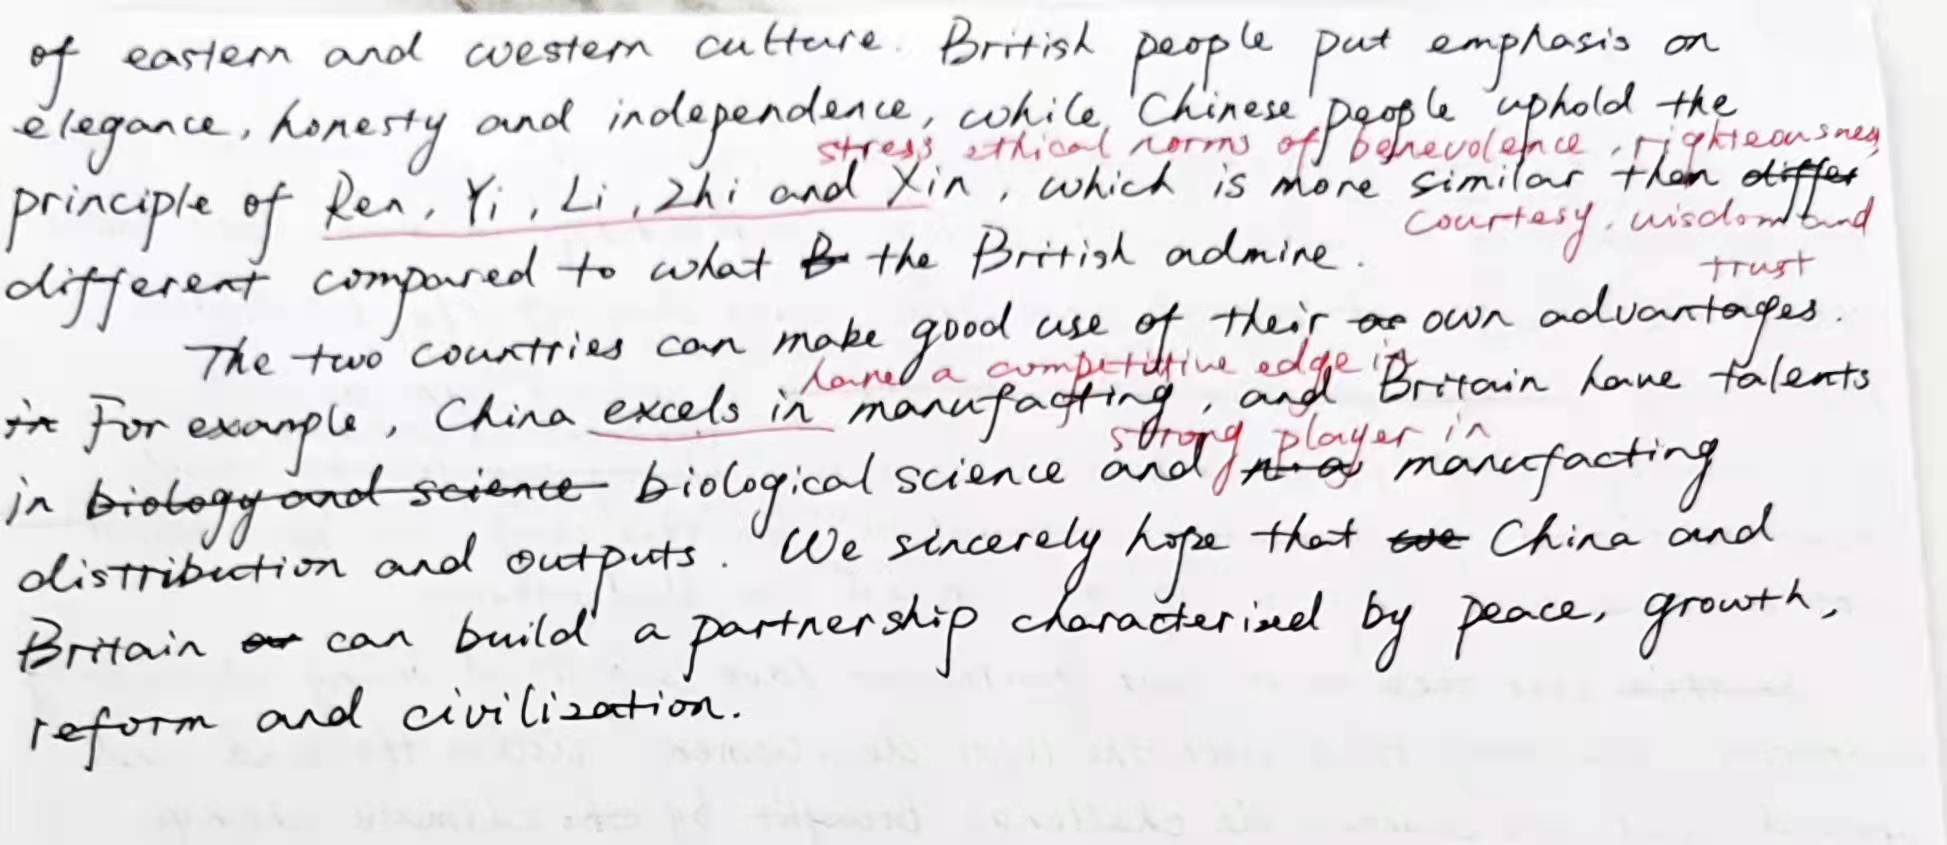 of eastern and western culture. British people put emphasis on
elegance, honesty and independence, while Chinese people uphold the
stress ethical norms of benevolence, righteousness,
principle of Ren, Yi, Li, Zhi and Xin, which is more similar than differ
courtesy, wisdom and
different compared to what B the British admire.
trust
The two countries can make good use of their own advantages.
have a competitive edge in
in For example, China excels in manufacting, and Britain have talents
strong player in
in biology and science biological science and manufacting
distribution and outputs. We sincerely hope that we China and
Britain can build a partnership characterized by peace, growth,
reform and civilization.